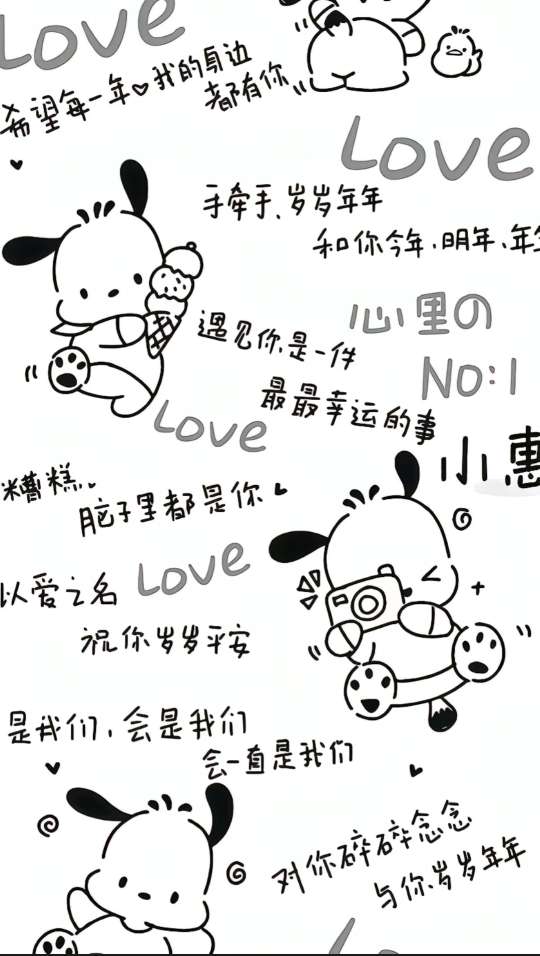 Love
希望每一年我的身边
都有你
Love
手牵手、岁岁年年
和你今年,明年,年
遇见你是一件
最最幸运的事
心里の
NO:1
Love
小惠
糟糕..
脑子里都是你
以爱之名
Love
祝你岁岁平安
是我们,会是我们
会一直是我们
对你碎碎念念
与你岁岁年年
Love